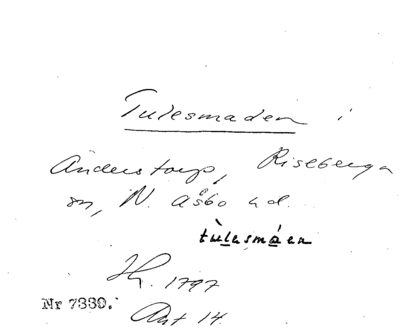 Tulesmaden i
Anderstorp, Riseberga
sn, N. Åsbo hd.
tulesmáen
Hr. 1797
Nr 7330.
Akt 14